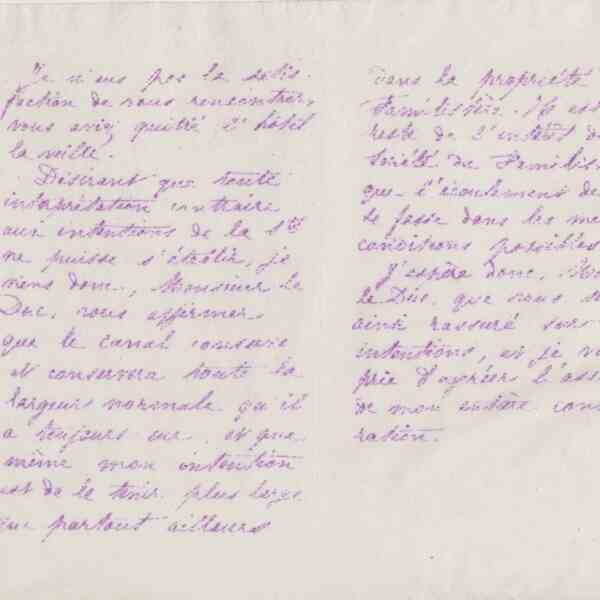 Je n'eus pas la satis-
faction de vous rencontrer,
vous aviez quitté l'hôtel
la veille.
Désirant que toute
interprétation contraire
aux intentions de la Sté
ne puisse s'établir, je
viens donc, Monsieur le
Duc, vous affirmer
que le canal conserve
et conservera toute la
largeur normale qu'il
a toujours eue, et que
même mon intention
est de le tenir plus large
que partout ailleurs
dans la propriété
Familistère. Il est
reste de l'intérêt d
Société du Familis
que l'écoulement de
se fasse dans les me
conditions possibles
J'espère donc,
le Duc, que vous s
ainsi rassuré sur
intentions, et je v
prie d'agréer l'ass
de mon entière con
ration.